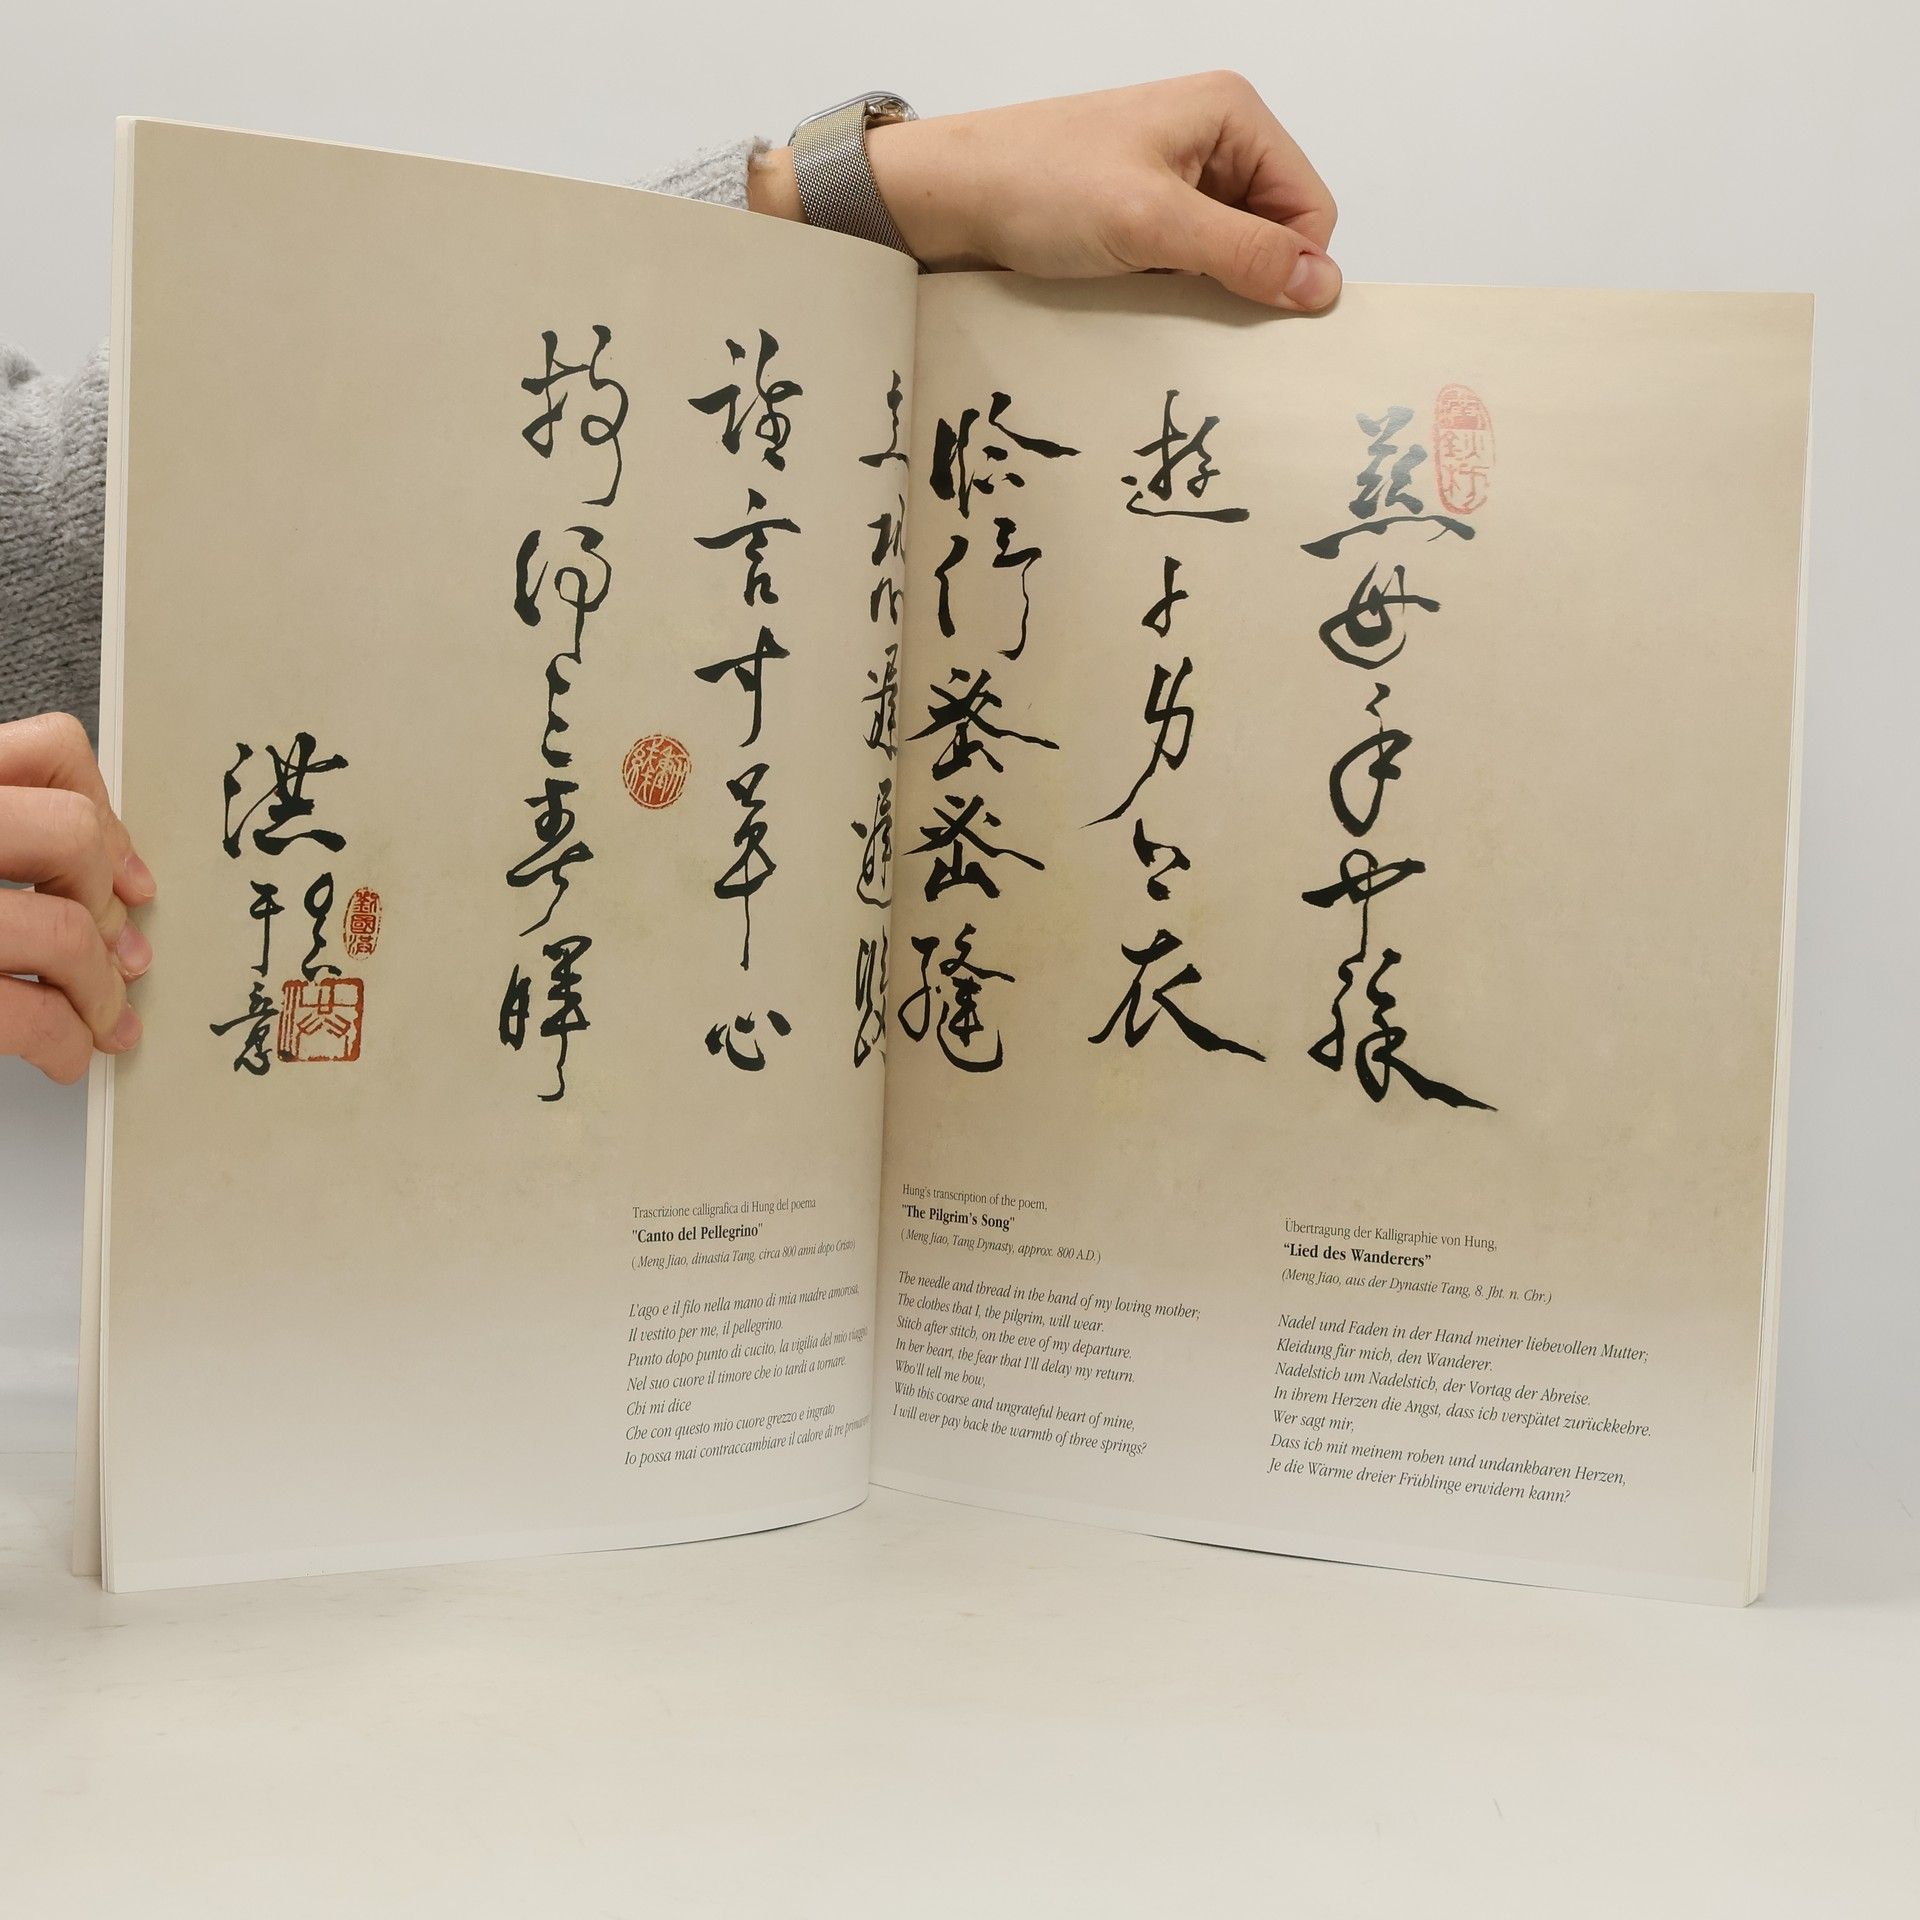 慈母手中線
遊子身上衣
臨行密密縫
意恐遲遲歸
誰言寸草心
報得三春暉
洪
于意
洪
Trascrizione calligrafica di Hung del poema
"Canto del Pellegrino"
( Meng Jiao, dinastia Tang, circa 800 anni dopo Cristo)
L'ago e il filo nella mano di mia madre amorosa,
Il vestito per me, il pellegrino.
Punto dopo punto di cucito, la vigilia del mio viaggio
Nel suo cuore il timore che io tardi a tornare.
Chi mi dice
Che con questo mio cuore grezzo e ingrato
Io possa mai contraccambiare il calore di tre
Hung's transcription of the poem,
"The Pilgrim's Song"
( Meng Jiao, Tang Dynasty, approx. 800 A.D.)
The needle and thread in the hand of my loving mother;
The clothes that I, the pilgrim, will wear.
Stitch after stitch, on the eve of my departure.
In her heart, the fear that I'll delay my return.
Who'll tell me how,
With this coarse and ungrateful heart of mine,
I will ever pay back the warmth of three springs?
Übertragung der Kalligraphie von Hung,
"Lied des Wanderers"
(Meng Jiao, aus der Dynastie Tang, 8. Jht. n. Chr.)
Nadel und Faden in der Hand meiner liebevollen Mutter;
Kleidung für mich, den Wanderer.
Nadelstich um Nadelstich, der Vortag der Abreise.
In ihrem Herzen die Angst, dass ich verspätet zurückkehre.
Wer sagt mir,
Dass ich mit meinem rohen und undankbaren Herzen,
Je die Wärme dreier Frühlinge erwidern kann?